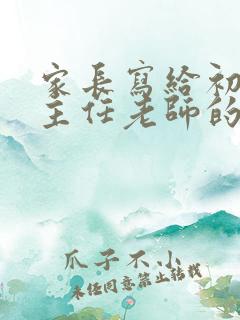 家長寫給初
主任老師的
爪子不小
未經同意禁止轉載